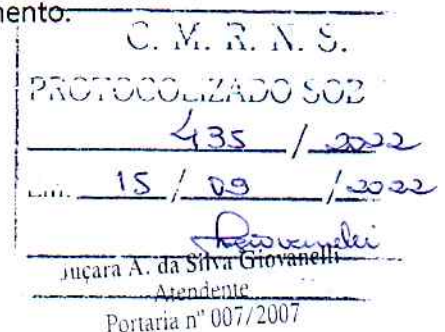 mento.
C. M. R. N. S.
PROTOCOLIZADO SOB
435 / 2022
Em. 15 / 09 / 2022
Juçara A. da Silva Giovanelli
Atendente
Portaria nº 007/2007